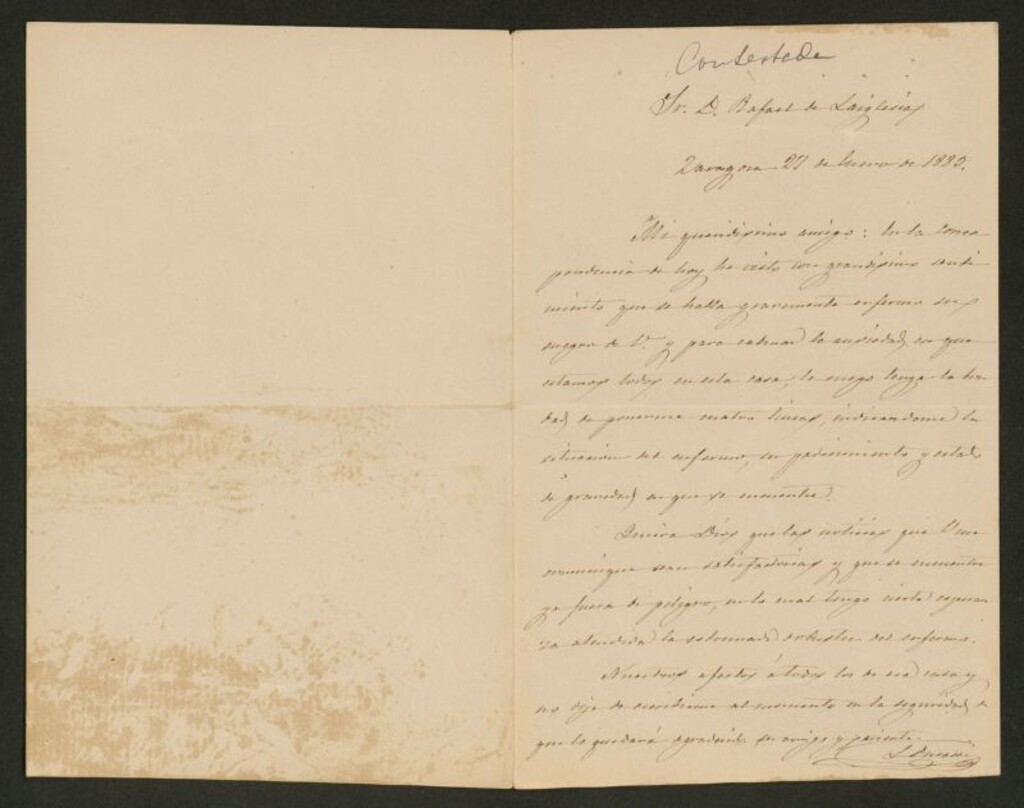 Contestada
Sr. D. Rafael de Laiglesia
Zaragoza 27 de Enero de 1883.
Mi queridisimo amigo: En la corres-
pondencia de hoy he visto con grandisimo senti-
miento que se halla gravemente enfermo su
suegro de V. y para calmar la ansiedad en que
estamos todos en esta casa, le ruego tenga la bon-
dad de ponerme cuatro lineas, indicandome la
situacion del enfermo, su padecimiento y estado
de gravedad en que se encuentre.
Quiera Dios que las noticias que V. me
comunique sean satisfactorias y que se encuentre
ya fuera de peligro, en lo cual tengo cierta esperan-
za atendida la estremada robustez del enfermo.
Nuestros afectos á todos los de esa casa y
no deje de escribirme al momento en la seguridad de
que le quedará agradecido su amigo y pariente